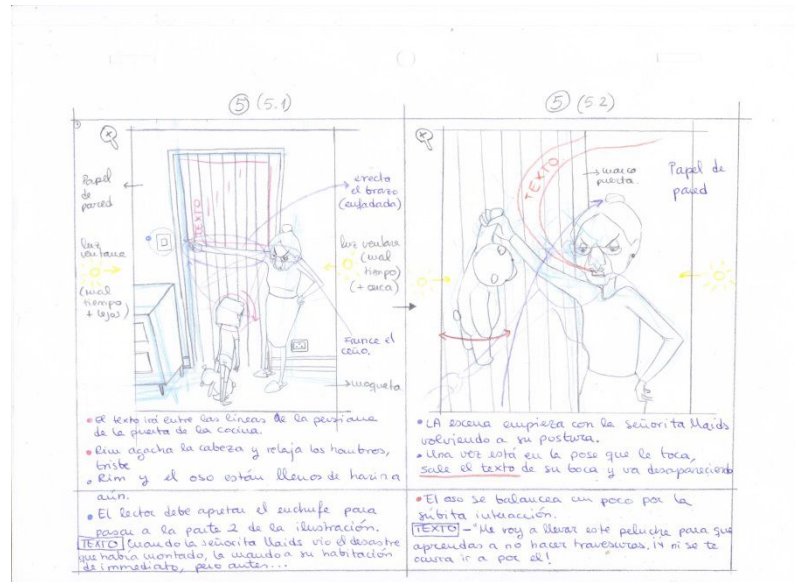 5 (5.1)
5 (5.2)
Papel
de
pared
luz
ventana
(mal
tiempo
+ lejos)
TEXTO
erecto
el brazo
(enfadada)
luz ventana
(mal
tiempo)
(+ cerca)
Frunce el
ceño.
moqueta
TEXTO
marco
puerta.
Papel de
pared
• El texto irá entre las líneas de la persiana
de la puerta de la cocina.
• Rim agacha la cabeza y relaja los hombros,
triste
• Rim y el oso están llenos de harina
aún.
• El lector debe apretar el enchufe para
pasar a la parte 2 de la ilustración.
TEXTO Cuando la señorita Maids vio el desastre
que había montado, la mandó a su habitación
de immediato, pero antes...
• LA escena empieza con la señorita Maids
volviendo a su postura.
• Una vez está en la pose que le toca,
sale el texto de su boca y va desapareciendo
• El oso se balancea un poco por la
súbita interacción.
TEXTO - "Me voy a llevar este peluche para que
aprendas a no hacer travesuras, ¡Y ni se te
ocurra ir a por él!